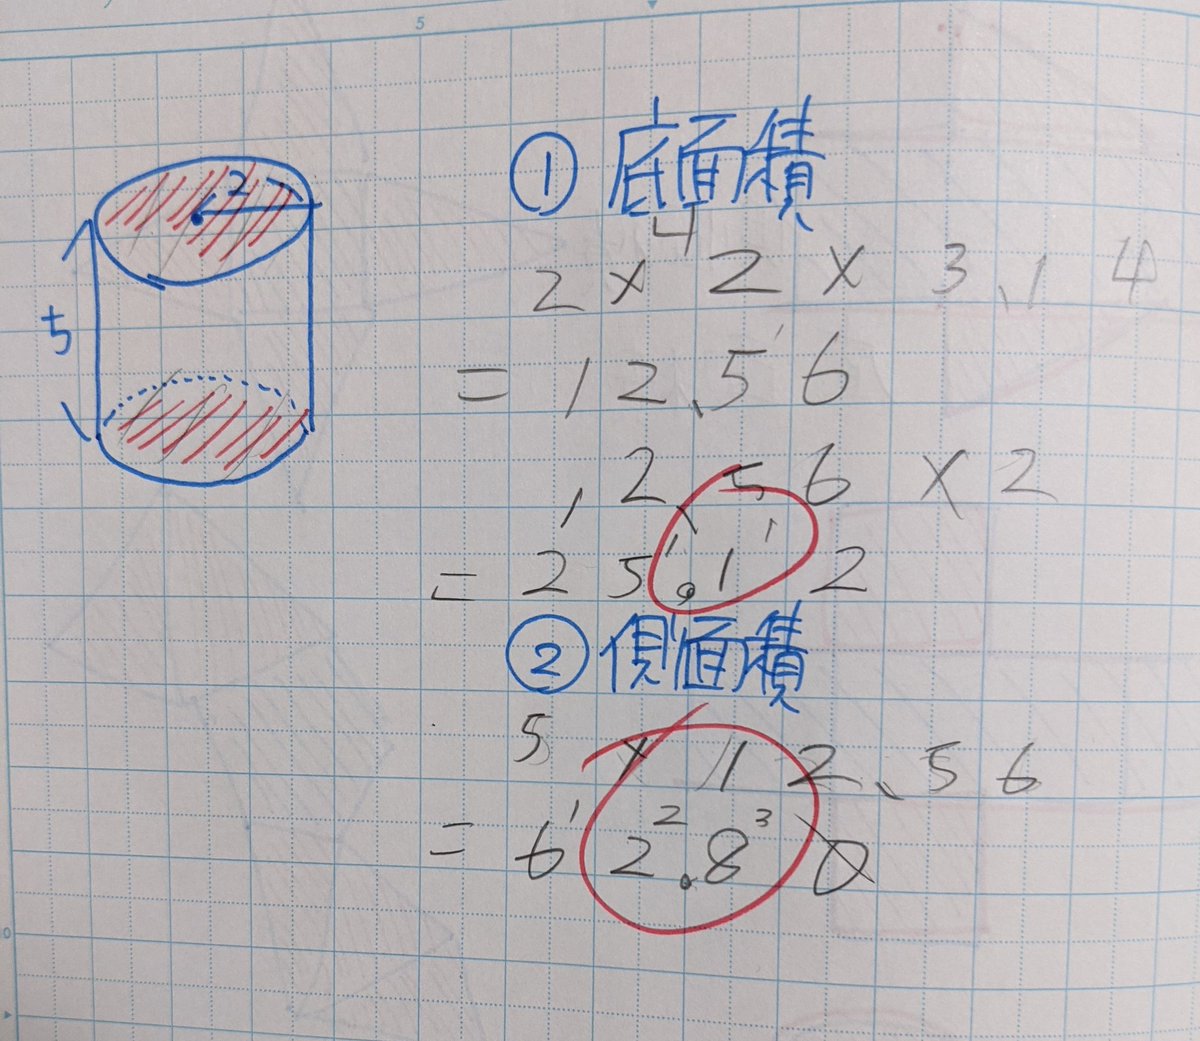 5
2
5
① 底面積
4
2 × 2 × 3.14
= 12.56
12.56 × 2
= 25.12
② 側面積
5 × 12.56
= 62.80